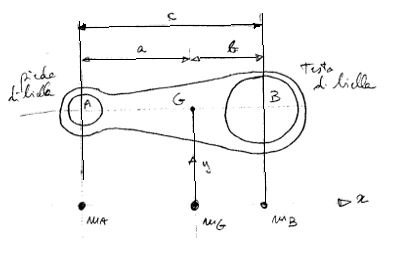 c
a
b
piede
di biella
testa
di biella
A
G
B
y
x
mA
mG
mB